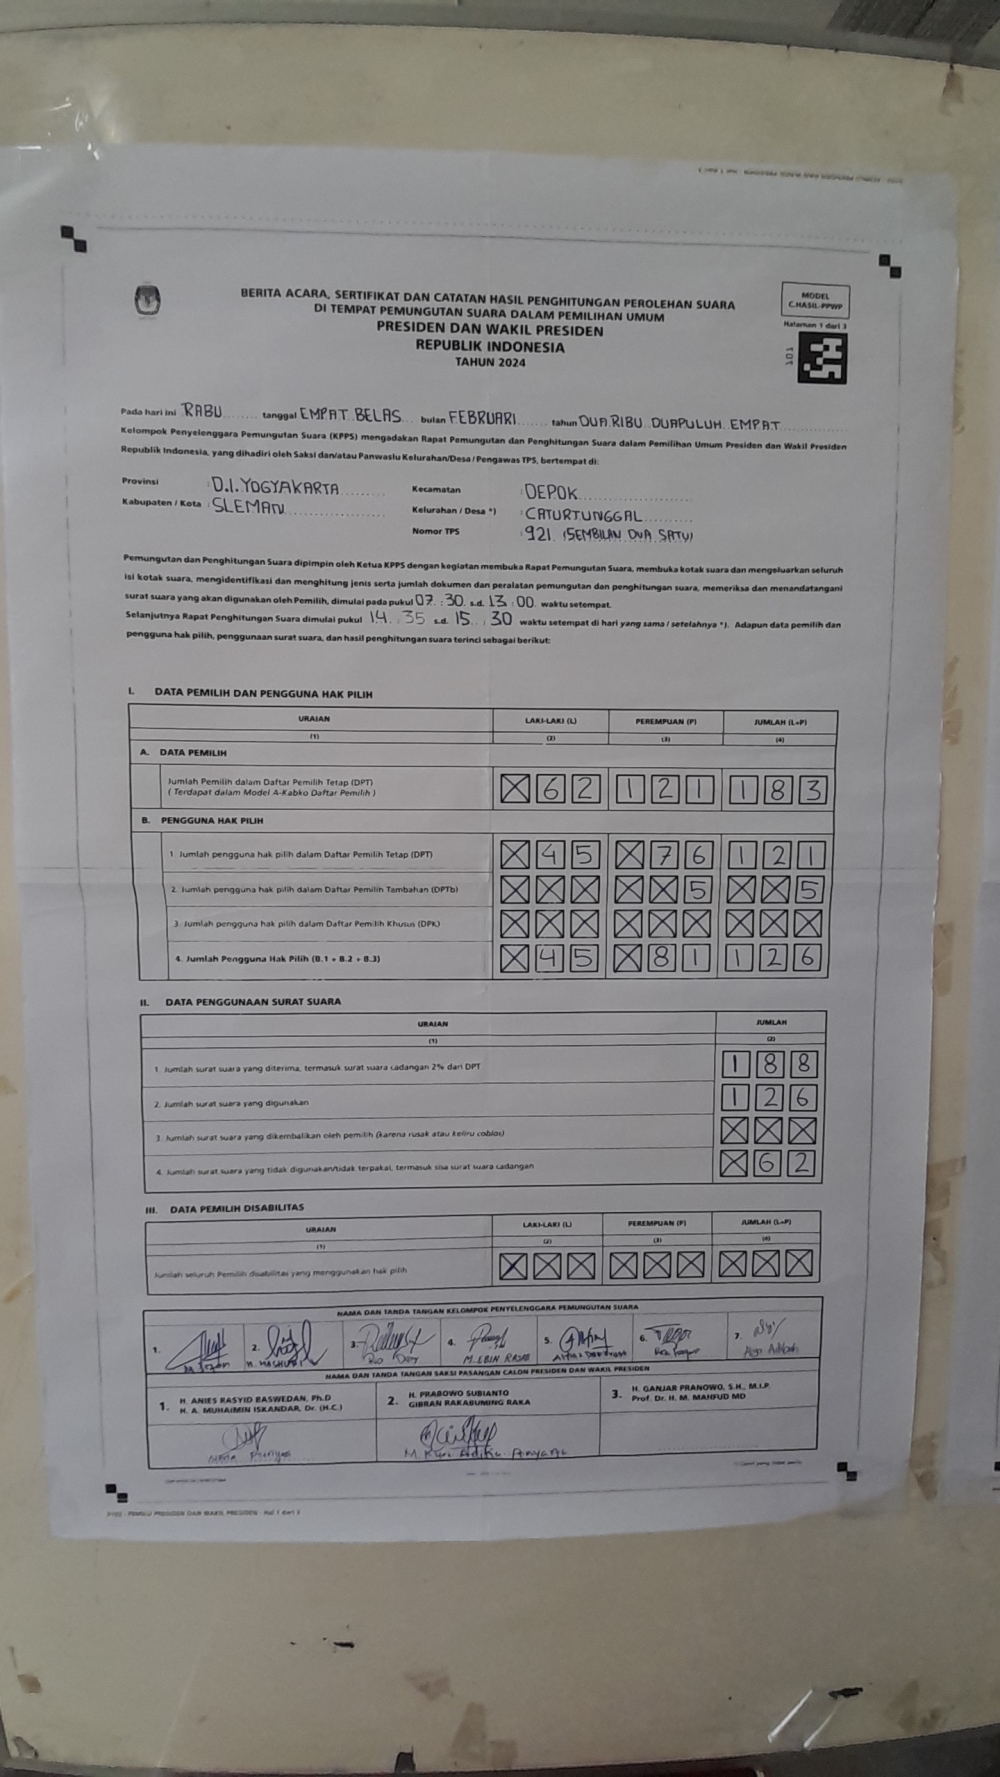 BERITA ACARA, SERTIFIKAT DAN CATATAN HASIL PENGHITUNGAN PEROLEHAN SUARA
DI TEMPAT PEMUNGUTAN SUARA DALAM PEMILIHAN UMUM
PRESIDEN DAN WAKIL PRESIDEN
REPUBLIK INDONESIA
TAHUN 2024
MODEL
C.HASIL-PPWP
Halaman 1 dari 3
101
Pada hari ini RABU tanggal EMPAT BELAS bulan FEBRUARI tahun DUA RIBU DUAPULUH EMPAT
Kelompok Penyelenggara Pemungutan Suara (KPPS) mengadakan Rapat Pemungutan dan Penghitungan Suara dalam Pemilihan Umum Presiden dan Wakil Presiden
Republik Indonesia, yang dihadiri oleh Saksi dan/atau Panwaslu Kelurahan/Desa / Pengawas TPS, bertempat di:
Provinsi : D.I.YOGYAKARTA Kecamatan : DEPOK
Kabupaten / Kota : SLEMAN Kelurahan / Desa *) : CATURTUNGGAL
Nomor TPS : 921 (SEMBILAN DUA SATU)
Pemungutan dan Penghitungan Suara dipimpin oleh Ketua KPPS dengan kegiatan membuka Rapat Pemungutan Suara, membuka kotak suara dan mengeluarkan seluruh
isi kotak suara, mengidentifikasi dan menghitung jenis serta jumlah dokumen dan peralatan pemungutan dan penghitungan suara, memeriksa dan menandatangani
surat suara yang akan digunakan oleh Pemilih, dimulai pada pukul 07 : 30 s.d. 13 : 00 waktu setempat.
Selanjutnya Rapat Penghitungan Suara dimulai pukul 14 : 35 s.d. 15 : 30 waktu setempat di hari yang sama / setelahnya *). Adapun data pemilih dan
pengguna hak pilih, penggunaan surat suara, dan hasil penghitungan suara terinci sebagai berikut:
I. DATA PEMILIH DAN PENGGUNA HAK PILIH
URAIAN LAKI-LAKI (L) PEREMPUAN (P) JUMLAH (L+P)
(1) (2) (3) (4)
A. DATA PEMILIH
Jumlah Pemilih dalam Daftar Pemilih Tetap (DPT)
( Terdapat dalam Model A-Kabko Daftar Pemilih ) X 6 2 1 2 1 1 8 3
B. PENGGUNA HAK PILIH
1. Jumlah pengguna hak pilih dalam Daftar Pemilih Tetap (DPT) X 4 5 X 7 6 1 2 1
2. Jumlah pengguna hak pilih dalam Daftar Pemilih Tambahan (DPTb) X X X X X 5 X X 5
3. Jumlah pengguna hak pilih dalam Daftar Pemilih Khusus (DPK) X X X X X X X X X
4. Jumlah Pengguna Hak Pilih (B.1 + B.2 + B.3) X 4 5 X 8 1 1 2 6
II. DATA PENGGUNAAN SURAT SUARA
URAIAN JUMLAH
(1) (2)
1. Jumlah surat suara yang diterima, termasuk surat suara cadangan 2% dari DPT 1 8 8
2. Jumlah surat suara yang digunakan 1 2 6
3. Jumlah surat suara yang dikembalikan oleh pemilih (karena rusak atau keliru coblos) X X X
4. Jumlah surat suara yang tidak digunakan/tidak terpakai, termasuk sisa surat suara cadangan X 6 2
III. DATA PEMILIH DISABILITAS
URAIAN LAKI-LAKI (L) PEREMPUAN (P) JUMLAH (L+P)
(1) (2) (3) (4)
Jumlah seluruh Pemilih disabilitas yang menggunakan hak pilih X X X X X X X X X
NAMA DAN TANDA TANGAN KELOMPOK PENYELENGGARA PEMUNGUTAN SUARA
1. 2. 3. 4. 5. 6. 7.
NAMA DAN TANDA TANGAN SAKSI PASANGAN CALON PRESIDEN DAN WAKIL PRESIDEN
1. H. ANIES RASYID BASWEDAN, Ph.D
H. A. MUHAIMIN ISKANDAR, Dr. (H.C.)
2. H. PRABOWO SUBIANTO
GIBRAN RAKABUMING RAKA
3. H. GANJAR PRANOWO, S.H., M.I.P.
Prof. Dr. H. M. MAHFUD MD